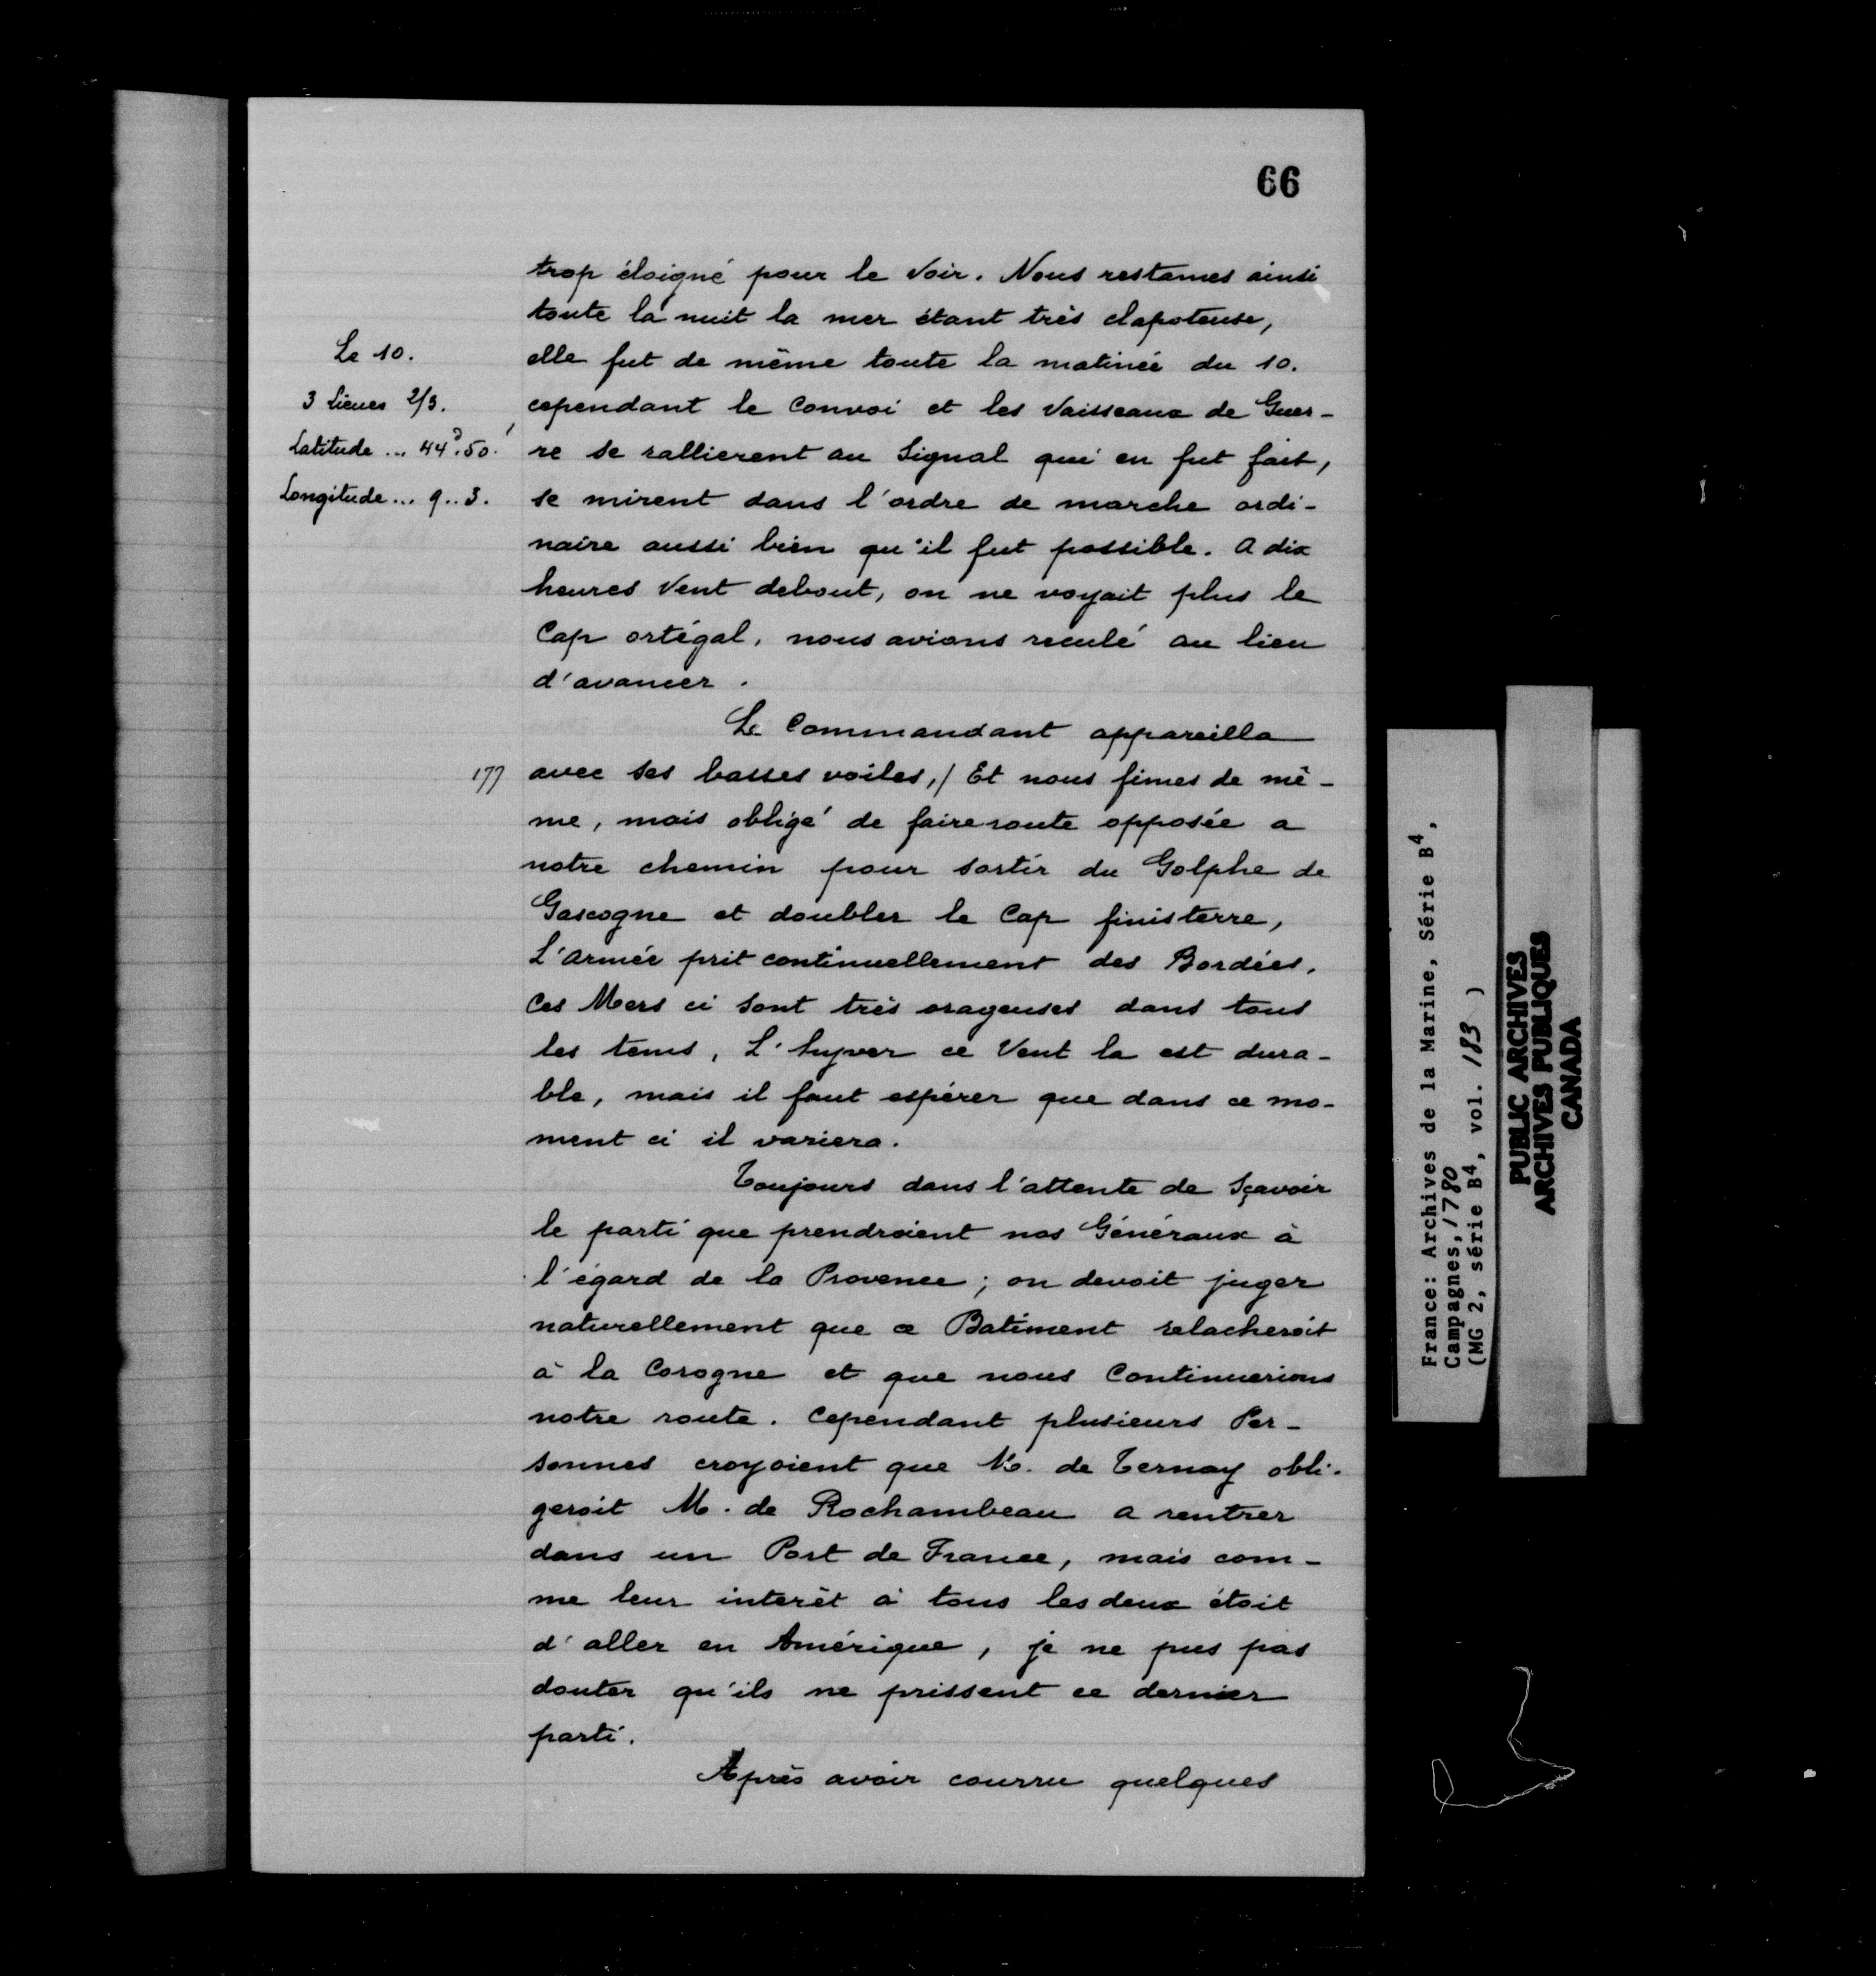 66
trop éloigné pour le voir. Nous restames ainsi
toute la nuit la mer étant très clapoteuse,
Le 10.
elle fut de même toute la matinée du 10.
3 lieues 2/3.
cependant le Convoi et les Vaisseaux de Guer-
Latitude ... 44.° 50.'
re se rallierent au Signal qui en fut fait,
Longitude ... 9..3.
se mirent dans l'ordre de marche ordi-
naire aussi bien qu'il fut possible. A dix
heures Vent debout, on ne voyait plus le
Cap ortégal, nous avions reculé au lieu
d'avancer.
Le Commandant appareilla
177
avec ses basses voiles,/ Et nous fimes de mê-
me, mais obligé de faire route opposée a
notre chemin pour sortir du Golphe de
Gascogne et doubler le Cap finisterre,
L'Armée prit continuellement des Bordées.
Ces Mers ci sont très orageuses dans tous
les tems, L'hyver ce Vent la est dura-
ble, mais il faut espérer que dans ce mo-
ment ci il variera.
Toujours dans l'attente de Sçavoir
le parti que prendroient nos Généraux à
l'égard de la Provence; on devoit juger
naturellement que ce Batiment relacheroit
à la Corogne et que nous Continuerions
notre route. Cependant plusieurs Per-
sonnes croyoient que M. de Ternay obli-
geroit M. de Rochambeau a rentrer
dans un Port de France, mais com-
me leur interêt à tous les deux étoit
d'aller en Amérique, je ne pus pas
douter qu'ils ne prissent ce dernier
parti.
Après avoir courru quelques
France: Archives de la Marine, Série B4,
Campagnes, 1780
(MG 2, série B4, vol. 183 )
PUBLIC ARCHIVES
ARCHIVES PUBLIQUES
CANADA